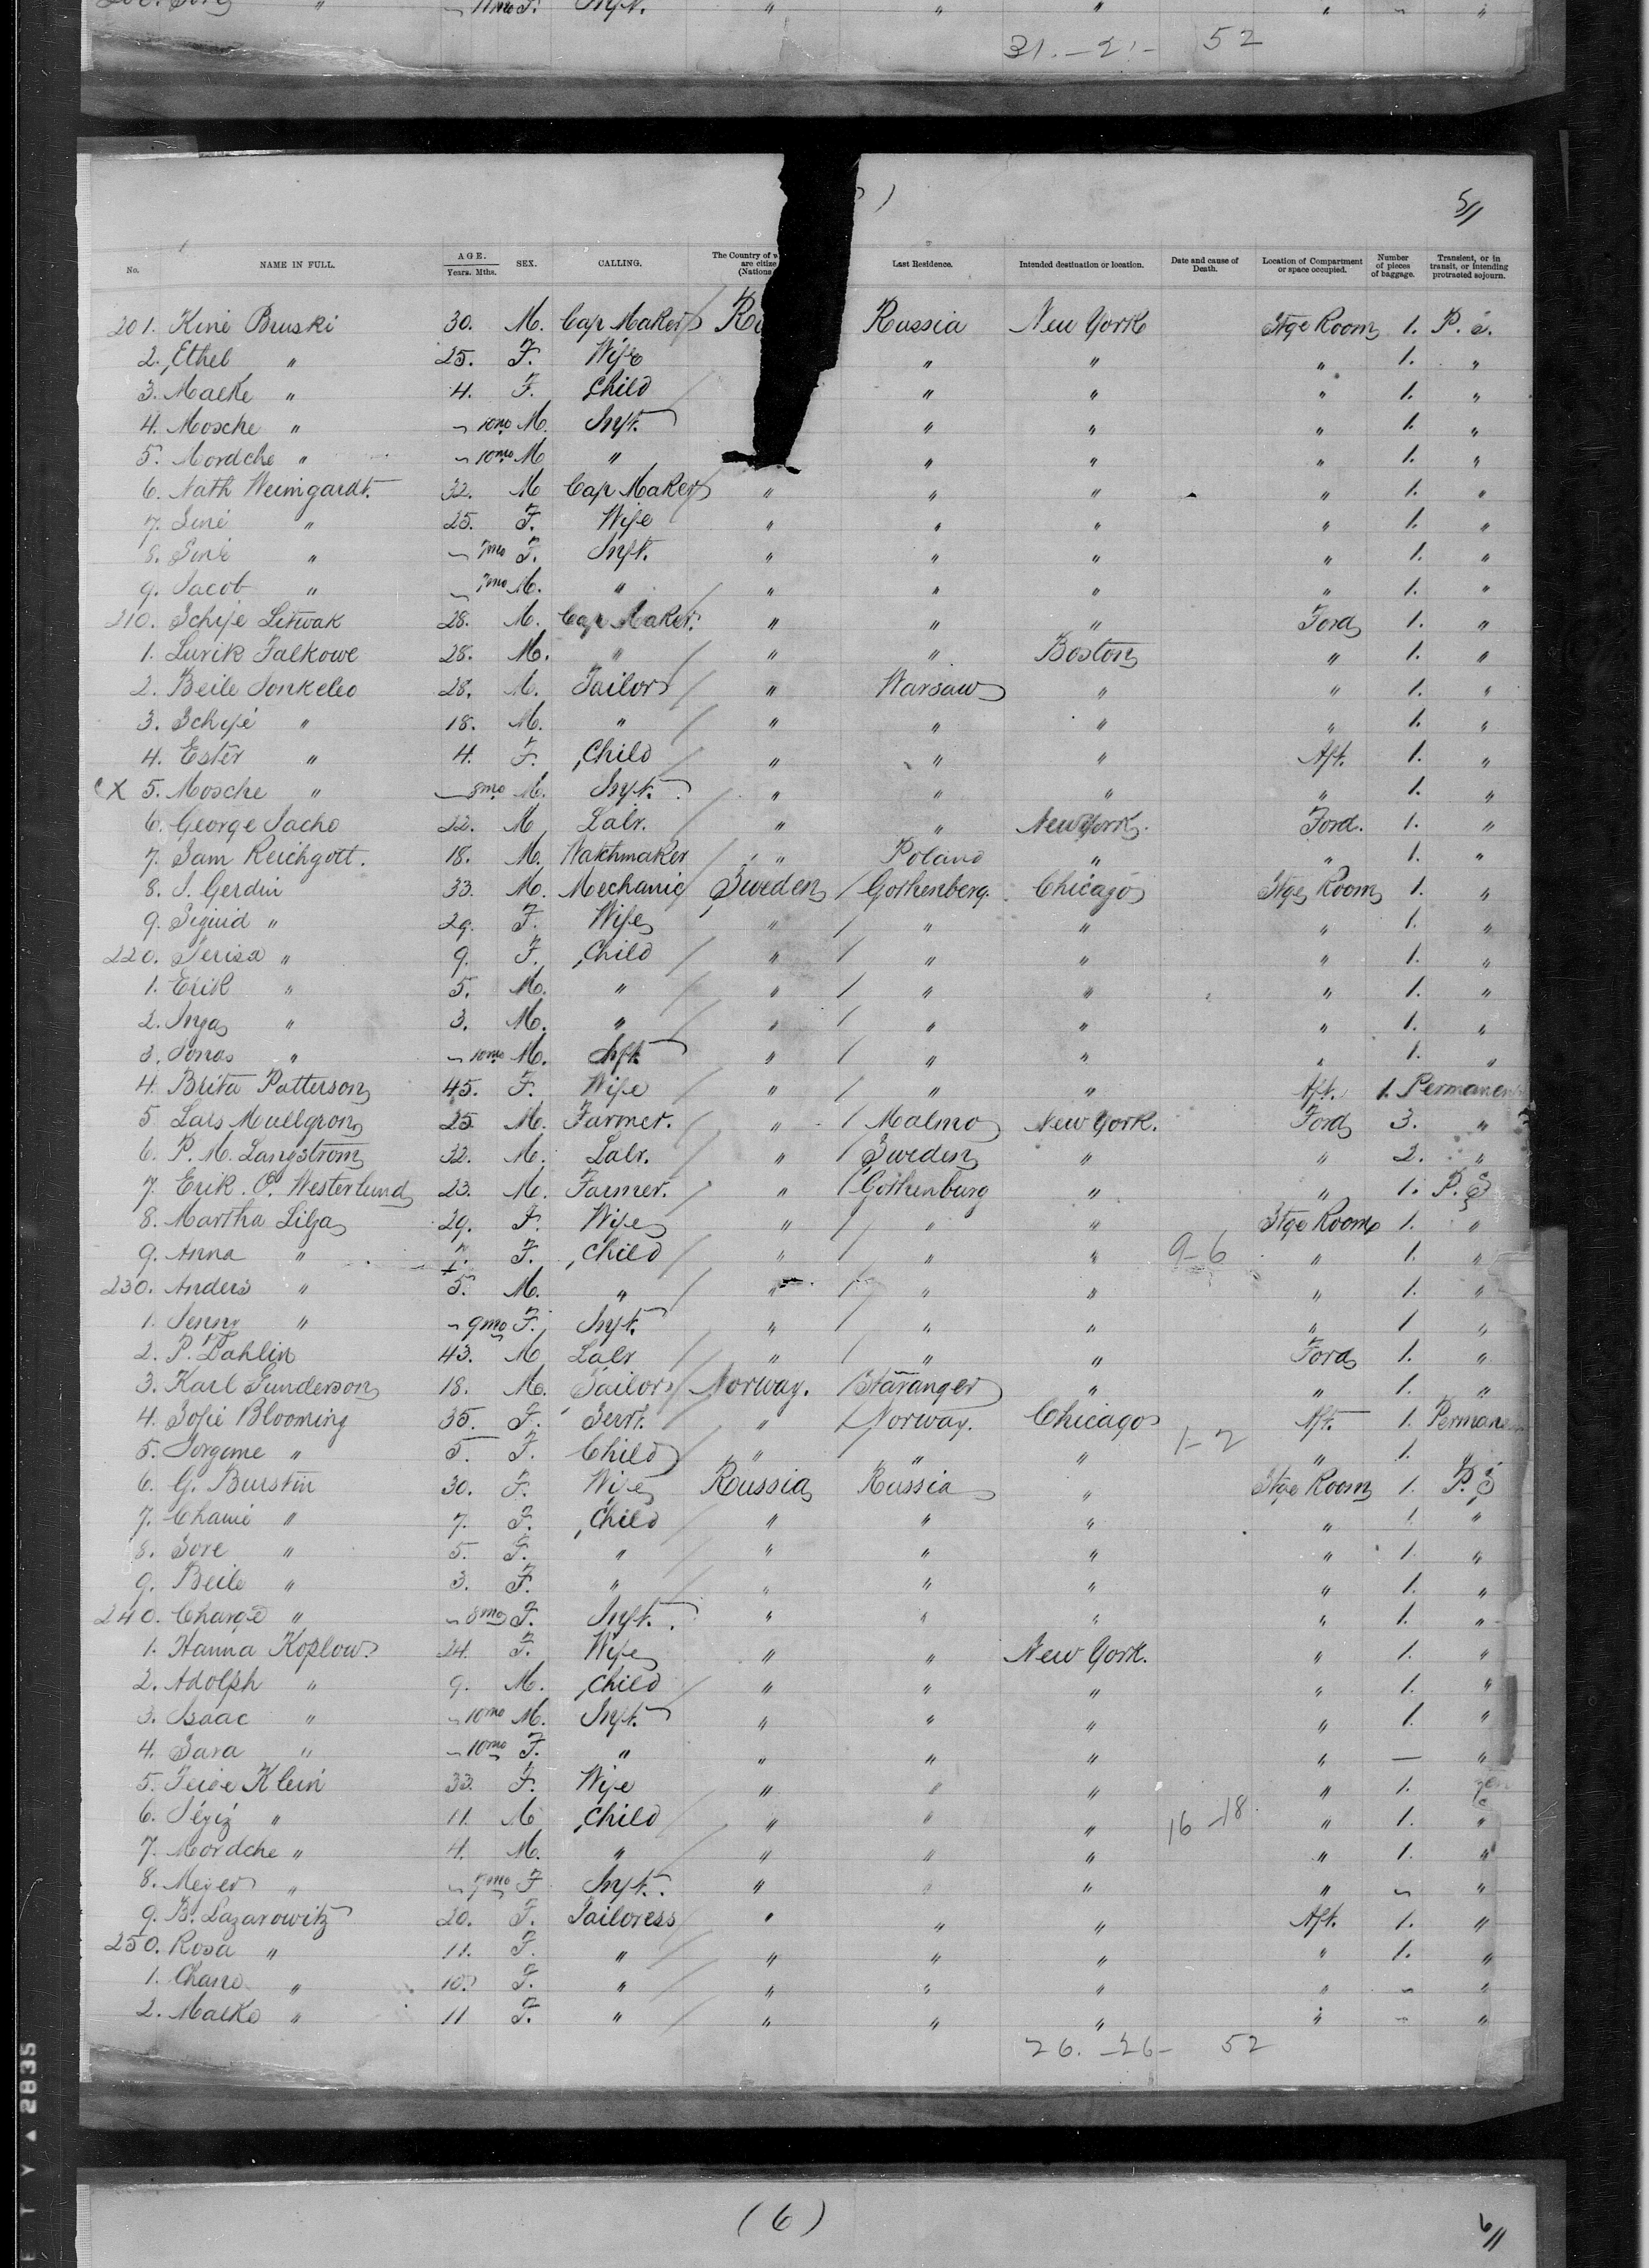 31. - 21 - 52
5//
No. NAME IN FULL. AGE. Years. Mths. SEX. CALLING. The Country of are citize (Nationa Last Residence. Intended destination or location. Date and cause of Death. Location of Compartment or space occupied. Number of pieces of baggage. Transient, or in transit, or intending protracted sojourn.
201. Kine Bruski 30. M. Cap Maker Russia New York Stge Room 1. P. S.
2. Ethel " 25. F. Wife " " " 1. "
3. Malke " 4. F. Child " " " 1. "
4. Mosche " 10mo M. Inft. " " " 1. "
5. Mordche " 10mo M " " " " 1. "
6. Nath Weimgardt. 32. M Cap Maker " " " " 1. "
7. " 25. F. Wife " " " " 1. "
8. " 7mo F. Inft. " " " " 1. "
9. Jacob " 7mo M. " " " " " 1. "
210. Schije Litwak 28. M. Cap Maker. " " " Ford 1. "
1. Lurik Falkowe 28. M. " " " Boston " 1. "
2. Beile Jonkeleo 28. M. Tailor " Warsaw " " 1. "
3. Schije " 18. M. " " " " " 1. "
4. Ester " 4. F. Child " " " Aft. 1. "
X 5. Mosche " 8mo M. Inft. " " " " 1. "
6. George Sacho 22. M Labr. " " New York. Ford. 1. "
7. Sam Reichgott. 18. M. Watchmaker " Poland " " 1. "
8. J. Gerdin 33. M. Mechanic Sweden Gothenberg. Chicago Stge Room 1. "
9. Sigrid " 29. F. Wife " " " " 1. "
220. Terisa " 9. F. Child " " " " 1. "
1. Erik " 5. M. " " " " " 1. "
2. Inga " 3. M. " " " " " 1. "
3. Jonas " 10mo M. Inft. " " " " 1. "
4. Brita Patterson 45. F. Wife " " " Aft. 1. Permanen
5. Lars Mullgron 25. M. Farmer. " Malmo New York. Ford 3. "
6. P. M. Langstrom 32. M. Labr. " Sweden " " 2. "
7. Erik. O. Westerlund 23. M. Farmer. " Gothenburg " " 1. P. S
8. Martha Lilja 29. F. Wife " " " Stge Room 1. "
9. Anna " 7. F. Child " " " 9-6 " 1. "
230. Anders " 5. M. " " " " " 1. "
1. Jenny " 9mo F. Inft. " " " " 1 "
2. P. Dahlin 43. M Labr " " " Ford 1. "
3. Karl Gunderson 18. M. Tailor Norway. Stavanger " " 1. "
4. Sofie Blooming 35. F. Servt. " Norway. Chicago Aft. 1. Permane
5. Jorgome " 5 F. Child " " " 1-2 " 1. "
6. G. Burstin 30. F. Wife Russia Russia " Stge Room 1. P. S
7. Chanie " 7. F. Child " " " " 1 "
8. Sore " 5. F. " " " " " 1. "
9. Beile " 3. F. " " " " " 1. "
240. " 8mo F. Inft. " " " " 1. "
1. Hanna Koplow 24. F. Wife " " New York. " 1. "
2. Adolph " 9. M. Child " " " " 1. "
3. Isaac " 10mo M. Inft. " " " " 1. "
4. Sara " 10mo F. " " " " " — "
5. Klein 33. F. Wife " " " " 1.
6. " 11. M Child " " " 16-18. " 1. "
7. Mordche " 4. M. " " " " " 1. "
8. Meyer " 7mo F Inft. " " " " - "
9. B. Lazarowitz 20. F. Tailoress " " " Aft. 1. "
250. Rosa " 11. F. " " " " " 1. "
1. Chane " 10. F. " " " " " - "
2. Malke " 11 F. " " " " " - "
26. - 26 - 52
2835
(6)
6//